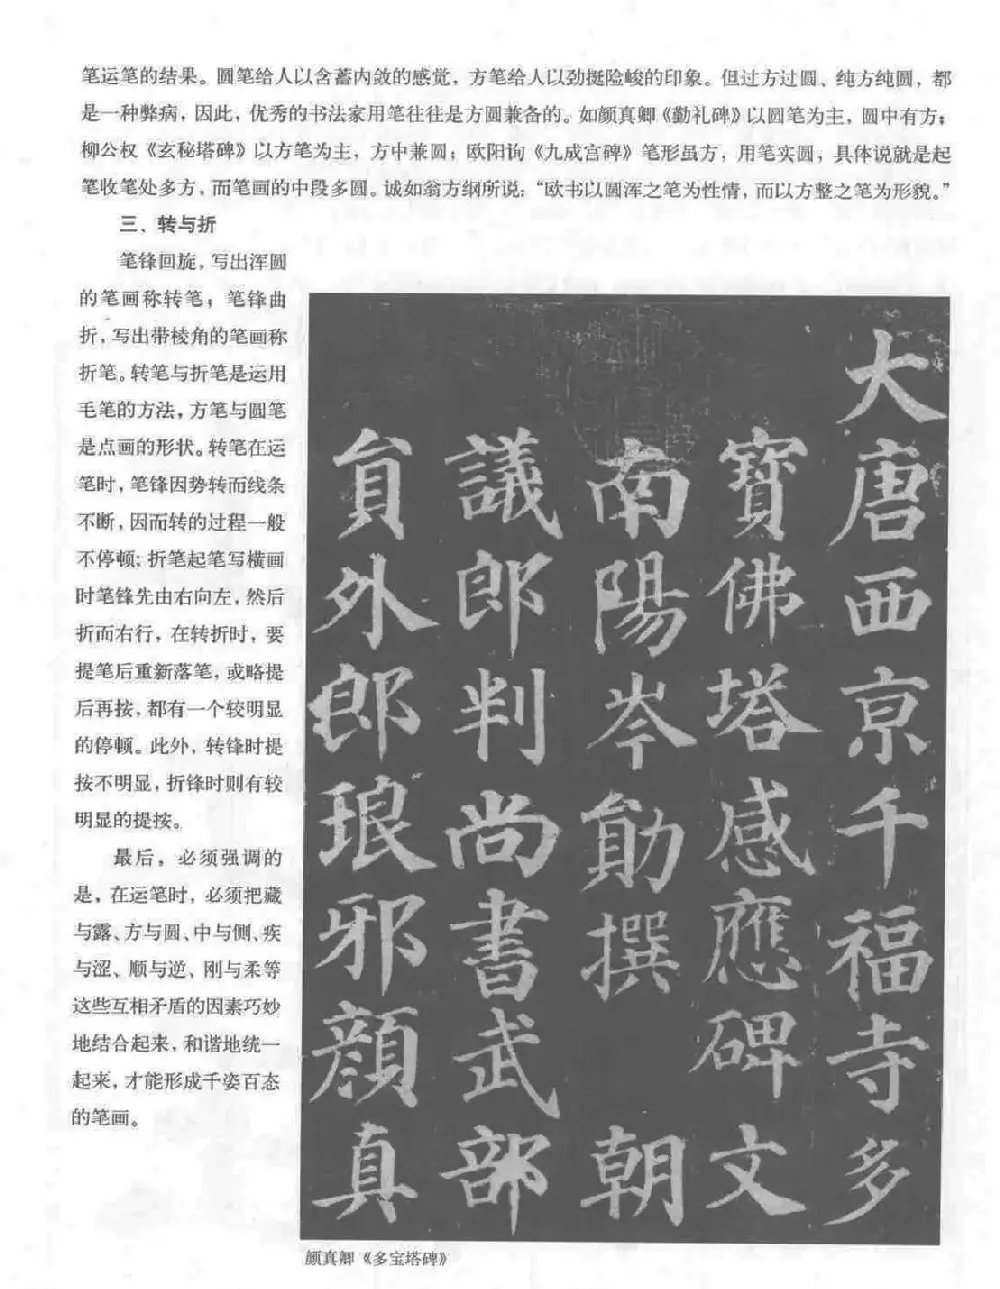 笔运笔的结果。圆笔给人以含蓄内敛的感觉，方笔给人以劲挺险峻的印象。但过方过圆、纯方纯圆，都
是一种弊病，因此，优秀的书法家用笔往往是方圆兼备的。如颜真卿《勤礼碑》以圆笔为主，圆中有方；
柳公权《玄秘塔碑》以方笔为主，方中兼圆；欧阳询《九成宫碑》笔形虽方，用笔实圆，具体说就是起
笔收笔处多方，而笔画的中段多圆。诚如翁方纲所说：“欧书以圆浑之笔为性情，而以方整之笔为形貌。”
三、转与折
笔锋回旋，写出浑圆
的笔画称转笔；笔锋曲
折，写出带棱角的笔画称
折笔。转笔与折笔是运用
毛笔的方法，方笔与圆笔
是点画的形状。转笔在运
笔时，笔锋因势转而线条
不断，因而转的过程一般
不停顿；折笔起笔写横画
时笔锋先由右向左，然后
折而右行，在转折时，要
提笔后重新落笔，或略提
后再按，都有一个较明显
的停顿。此外，转锋时提
按不明显，折锋时则有较
明显的提按。
最后，必须强调的
是，在运笔时，必须把藏
与露、方与圆、中与侧、疾
与涩、顺与逆、刚与柔等
这些互相矛盾的因素巧妙
地结合起来，和谐地统一
起来，才能形成千姿百态
的笔画。
大唐西京千福寺多
寶佛塔感應碑文
南陽岑勛撰 朝
議郎判尚書武部
員外郎琅邪顏真
颜真卿《多宝塔碑》